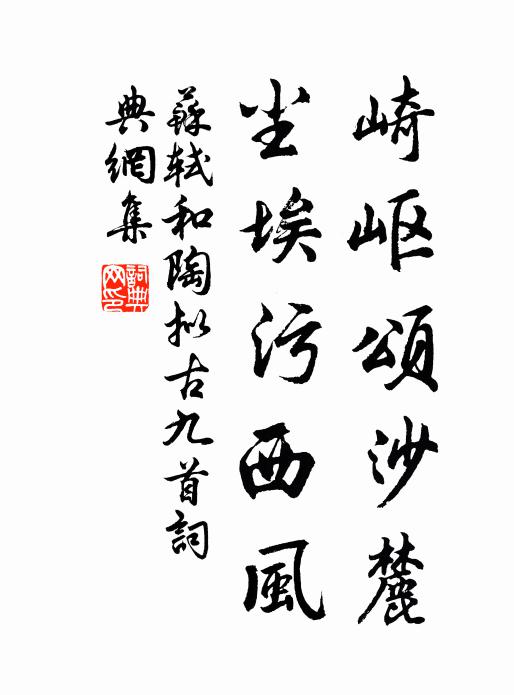 崎岖頌沙麓
尘埃污西風
蘇軾和陶拟古九首詞
典網集
詞典网印